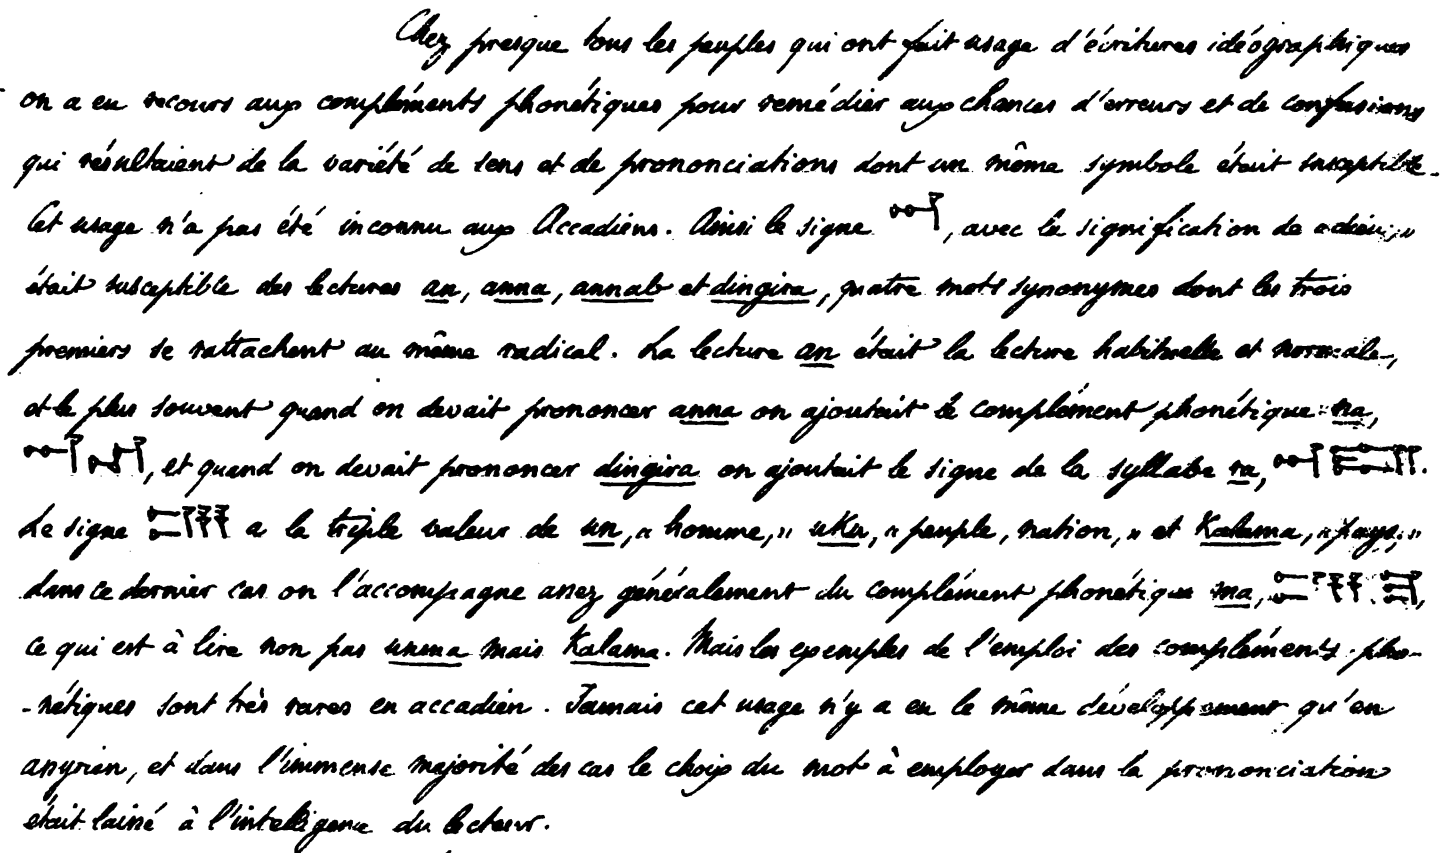 Chez presque tous les peuples qui ont fait usage d'écritures idéographiques
on a eu recours aux compléments phonétiques pour remédier aux chances d'erreurs et de confusions
qui résultaient de la variété de sens et de prononciations dont un même symbole était susceptible.
Cet usage n'a pas été inconnu aux Accadiens. Ainsi le signe 𒀭, avec la signification de « dieu, »
était susceptible des lectures an, anna, annab et dingira, quatre mots synonymes dont les trois
premiers se rattachent au même radical. La lecture an était la lecture habituelle et normale,
et le plus souvent quand on devait prononcer anna on ajoutait le complément phonétique na,
𒀭 𒈾, et quand on devait prononcer dingira on ajoutait le signe de la syllabe ra, 𒀭 𒊏.
Le signe 𒌦 a la triple valeur de un, « homme, » uku, « peuple, nation, » et Kalama, « pays, »
dans ce dernier cas on l'accompagne assez généralement du complément phonétique ma, 𒌦 𒈠,
ce qui est à lire non pas unma mais Kalama. Mais les exemples de l'emploi des compléments pho-
-nétiques sont très rares en accadien. Jamais cet usage n'y a eu le même développement qu'en
assyrien, et dans l'immense majorité des cas le choix du mot à employer dans la prononciation
était laissé à l'intelligence du lecteur.